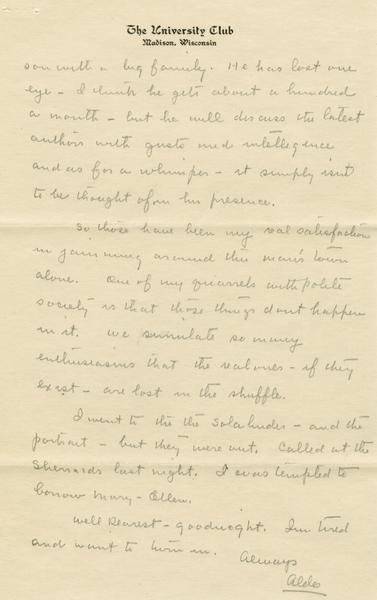 The University Club
Madison, Wisconsin
son with a big family. He has lost one
eye - I think he gets about a hundred
a month - but he will discuss the latest
authors with gusto and intellegence
and as for a whimper - it simply isn't
to be thought of in his presence.
So those have been my real satisfaction
in jamming around this man's town
alone. One of my quarrels with polite
society is that those things dont happen
in it. We simulate so many
enthusiasms that the real ones - if they
exist - are lost in the shuffle.
I went to the the - and the
portrait - but they were out. Called at the
last night. I was tempted to
borrow Mary-Ellen.
Well Dearest - goodnight. I'm tired
and want to turn in.
Always
Aldo